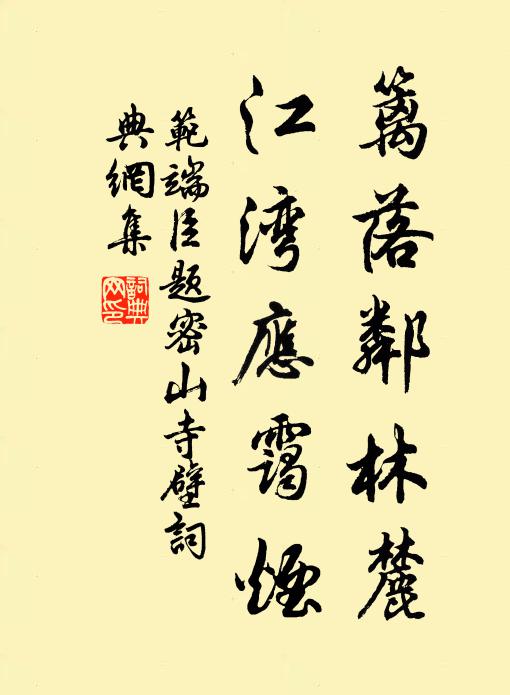 籬落鄰林麓
江灣應靄煙
範端臣題密山寺壁詞
典網集
詞典網印